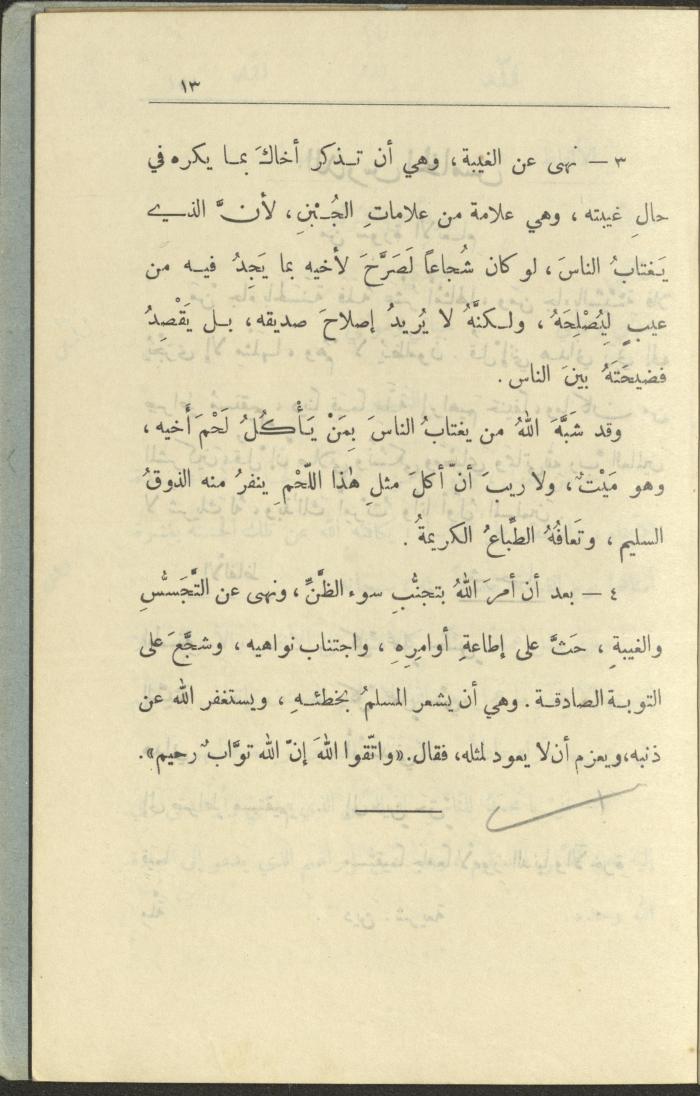 ١٣
٣ — نهى عن الغيبة ، وهي أن تذكر أخاكَ بما يكره في
حالِ غيبته ، وهي علامة من علاماتِ الجُبْنِ ، لأنَّ الذي
يَغتابُ الناسَ ، لو كان شُجاعاً لَصَرَّحَ لأخيه بما يَجِدُ فيه من
عيبٍ لِيُصْلِحَهُ ، ولكنَّهُ لا يُريدُ إصلاحَ صديقه ، بل يَقْصِدُ
فضيحَتَهُ بينَ الناس .
وقد شَبَّهَ اللهُ من يغتابُ الناسَ بِمَنْ يَأْكُلُ لَحْمَ أخيه ،
وهو مَيْتٌ ، ولا ريبَ أنّ أكلَ مثلِ هٰذا اللّحْمِ ينفرُ منه الذوقُ
السليم ، وتَعافُهُ الطِّباعُ الكريمةُ .
٤ — بعد أن أمرَ اللهُ بتجنُّبِ سوء الظَّنِّ ، ونهى عن التَّجَسُّسِ
والغيبةِ ، حَثَّ على إطاعةِ أوامرِهِ ، واجتناب نواهيه ، وشجَّعَ على
التوبة الصادقة . وهي أن يشعر المسلمُ بخطئهِ ، ويستغفر الله عن
ذنبه، ويعزم أن لا يعود لمثله، فقال. «واتّقوا اللهَ إنّ الله توَّابٌ رحيم».